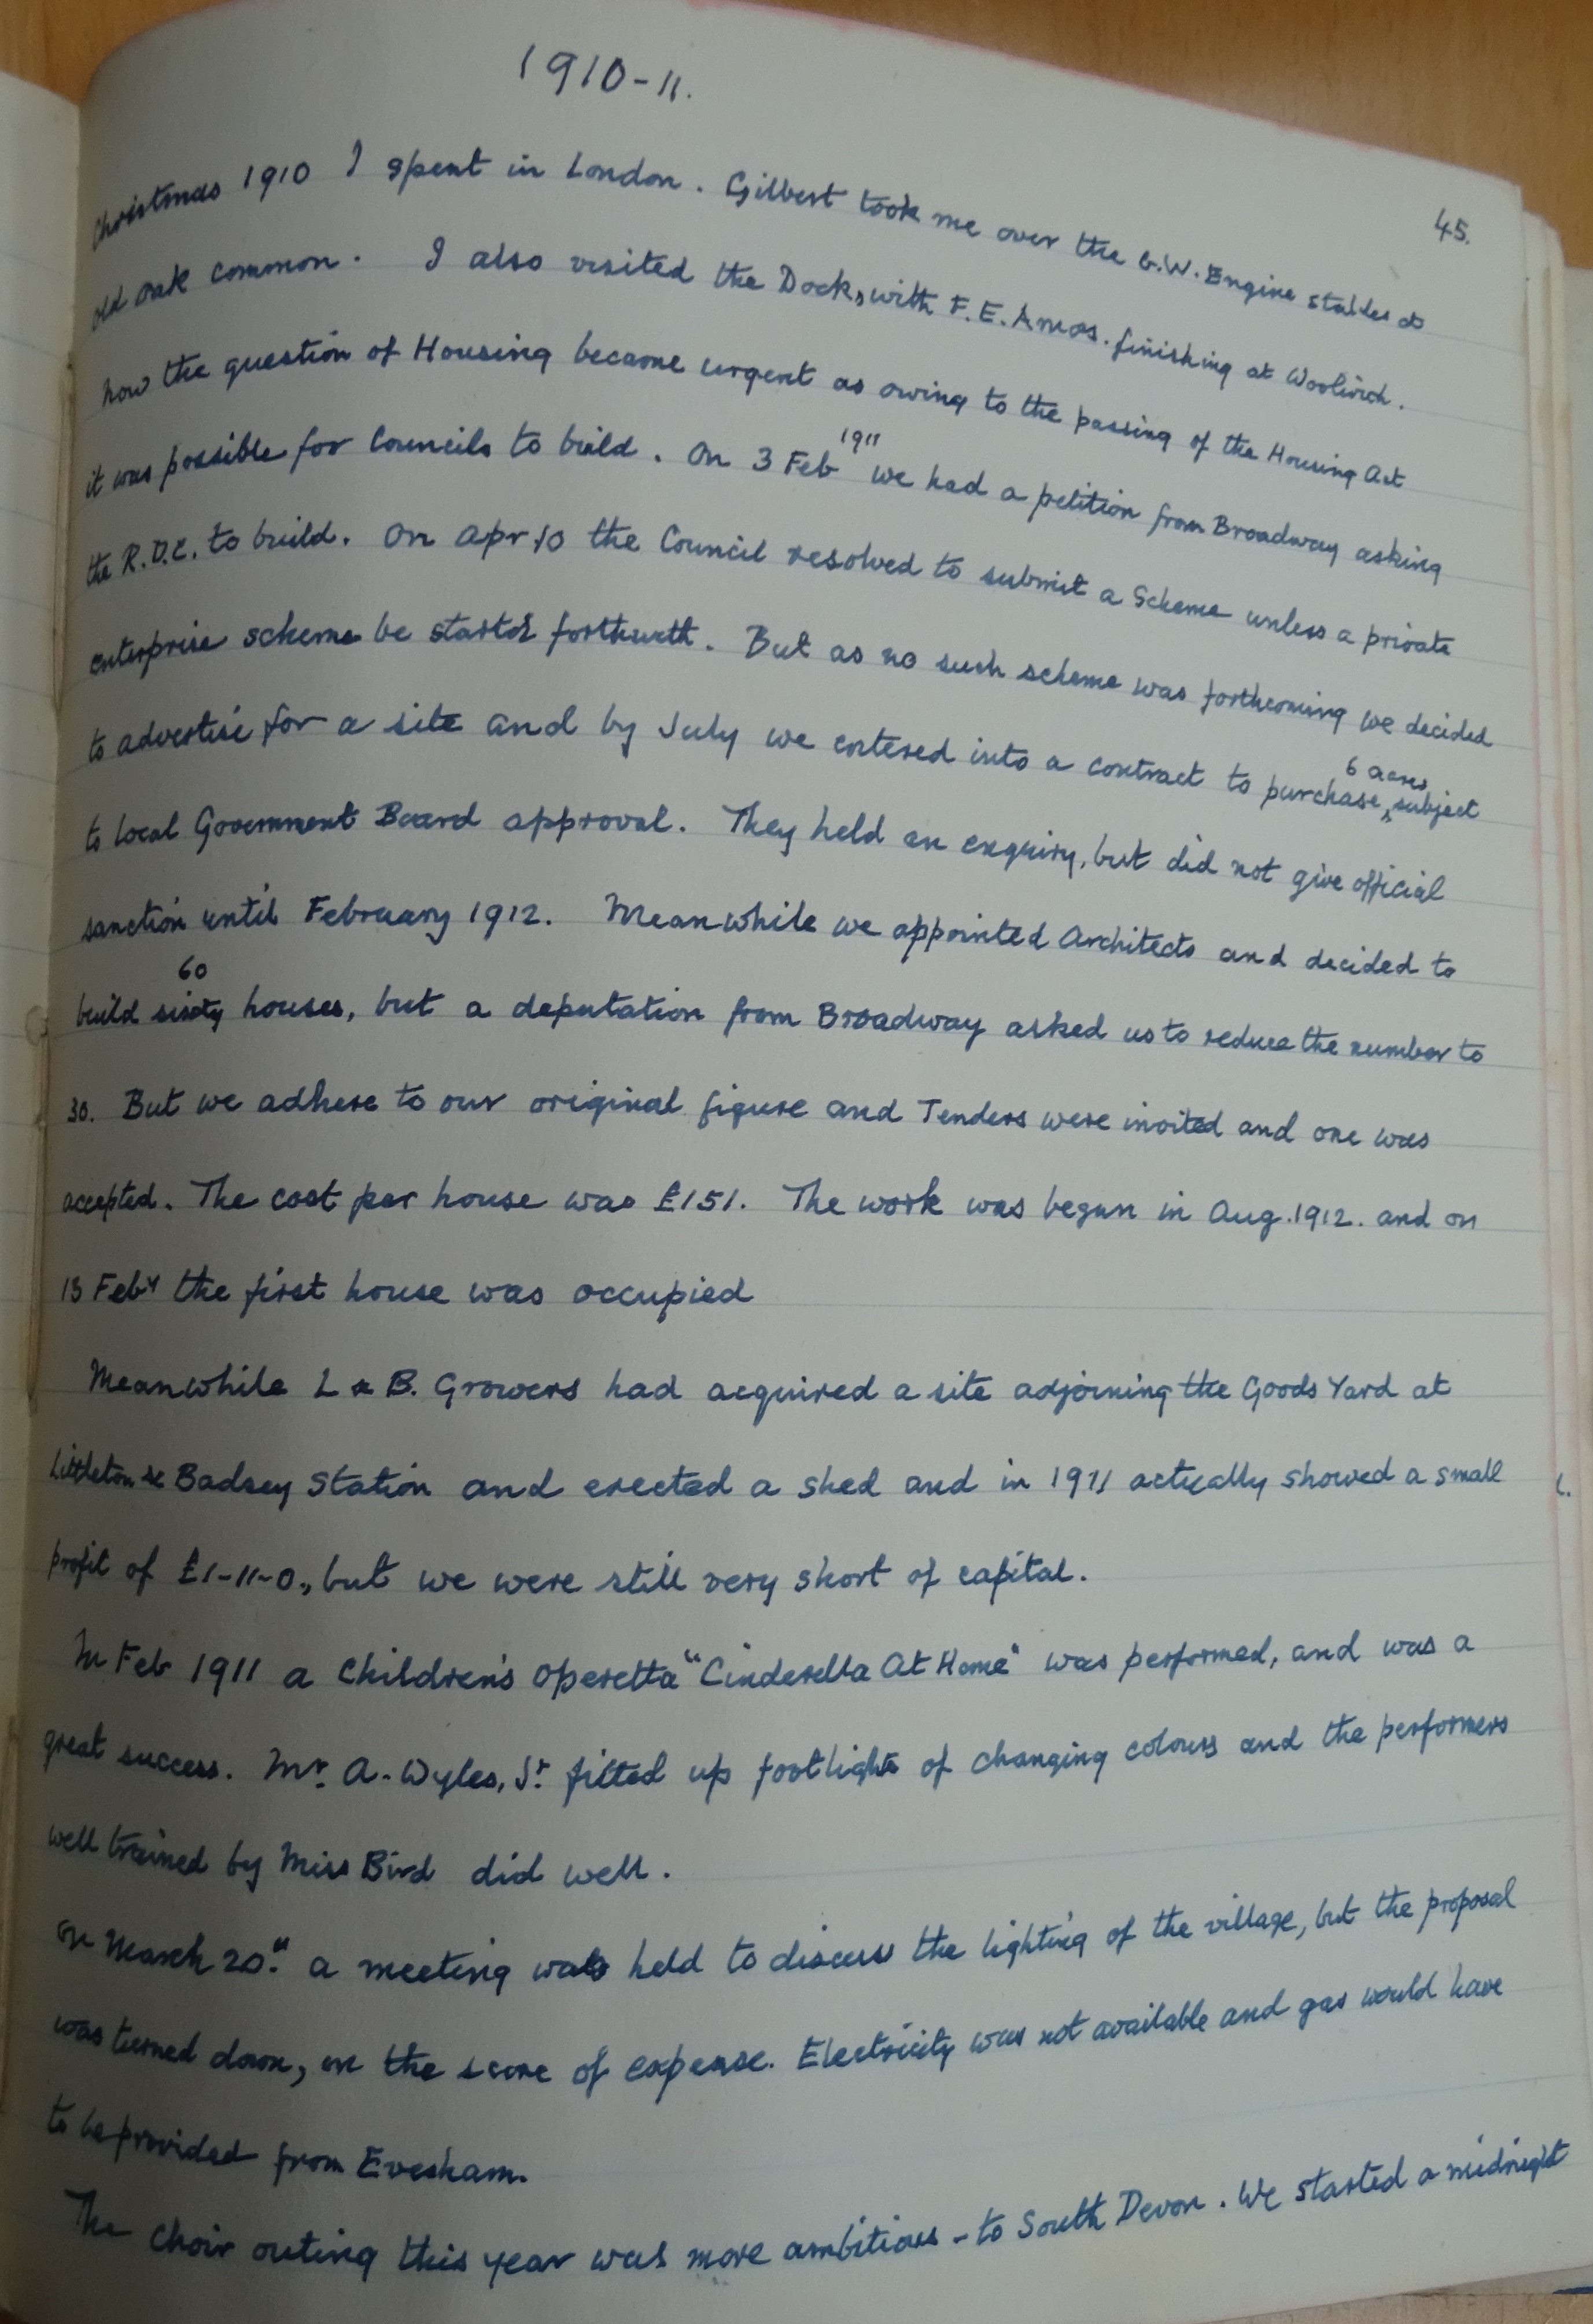 1910-11.
45.
Christmas 1910 I spent in London. Gilbert took me over the G.W. Engine stables at
Old Oak Common. I also visited the Docks, with F.E. Amos. finishing at Woolwich.
Now the question of Housing became urgent as owing to the passing of the Housing Act
it was possible for Councils to build. On 3 Feb 1911 we had a petition from Broadway asking
the R.D.C. to build. On Apr 10 the Council resolved to submit a Scheme unless a private
enterprise scheme be started forthwith. But as no such scheme was forthcoming we decided
to advertise for a site and by July we entered into a contract to purchase 6 acres, subject
to Local Government Board approval. They held an enquiry, but did not give official
sanction until February 1912. Meanwhile we appointed Architects and decided to
build sixty 60 houses, but a deputation from Broadway asked us to reduce the number to
30. But we adhere to our original figure and Tenders were invited and one was
accepted. The cost per house was £151. The work was begun in Aug. 1912. and on
13 Feby the first house was occupied
Meanwhile L & B. Growers had acquired a site adjoining the Goods Yard at
Littleton & Badsey Station and erected a shed and in 1911 actually showed a small
profit of £1-11-0., but we were still very short of capital.
In Feb 1911 a Children's Operetta "Cinderella At Home" was performed, and was a
great success. Mr. A. Wyles, Sr. fitted up footlights of changing colours and the performers
well trained by Miss Bird did well.
On March 20th a meeting was held to discuss the lighting of the village, but the proposal
was turned down, on the score of expense. Electricity was not available and gas would have
to be provided from Evesham.
The Choir outing this year was more ambitious - to South Devon. We started a midnight